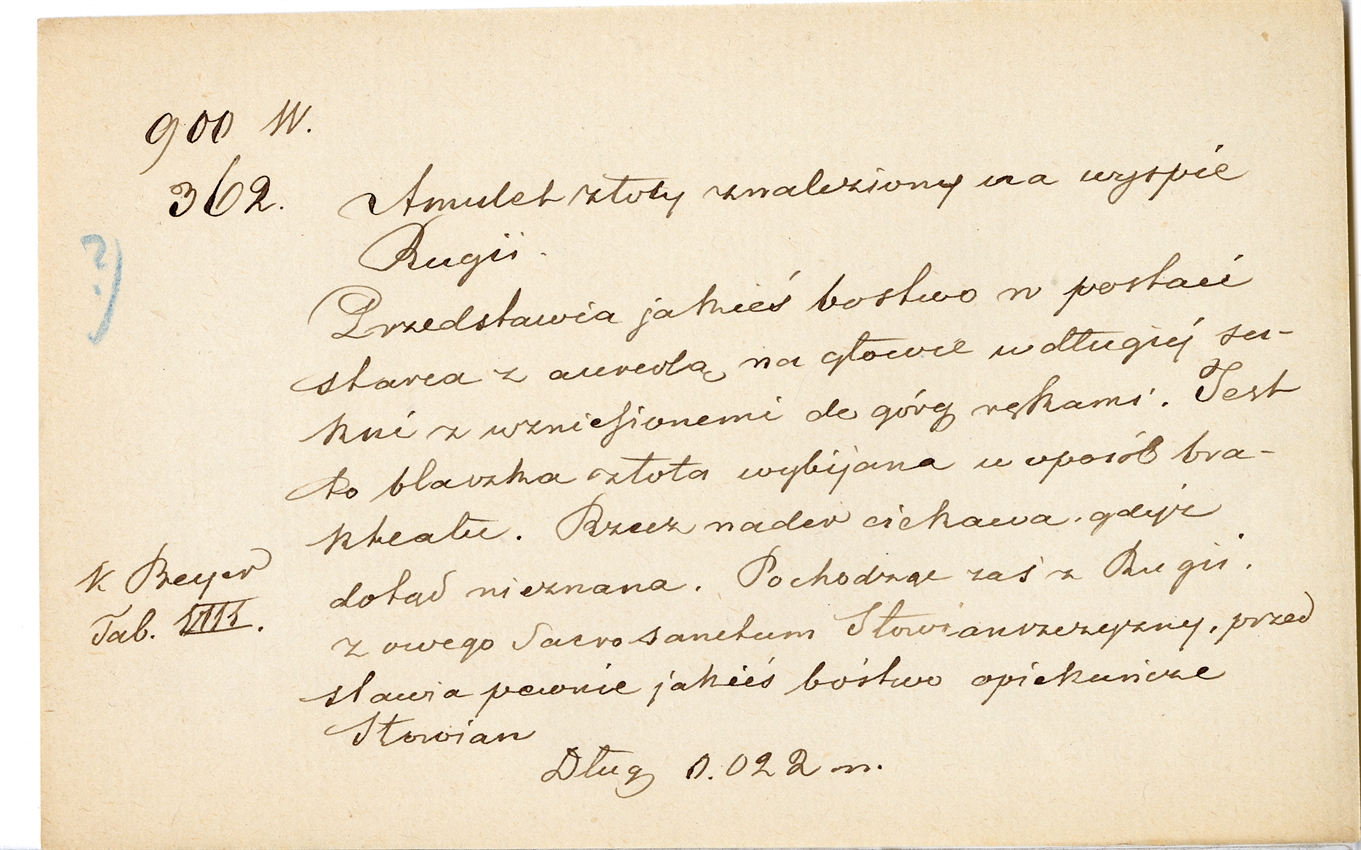 900 W.
362. Amulet złoty znaleziony na wyspie
Rugii.
?)
Przedstawia jakieś bostwo w postaci
starca z aureolą na głowie w długiéj su-
kni z wzniesionemi do góry rękami. Jest
to blaszka złota wybijana w sposób bra-
kteatu. Rzecz nader ciekawa, gdyż
dotąd nieznana. Pochodząc zaś z Rugii,
K Beyer
Tab. VIII.
z owego Sacrosanctum Słowiańszczyzny, przed
stawia pewnie jakieś bóstwo opiekuńcze
Słowian
Dług 0.022 m.